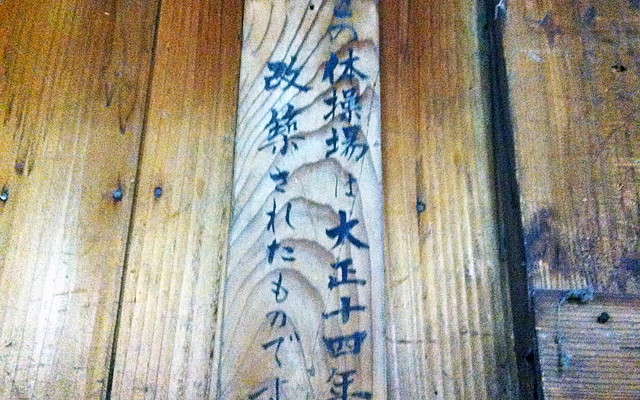 の体操場は大正十四年
改築されたものです